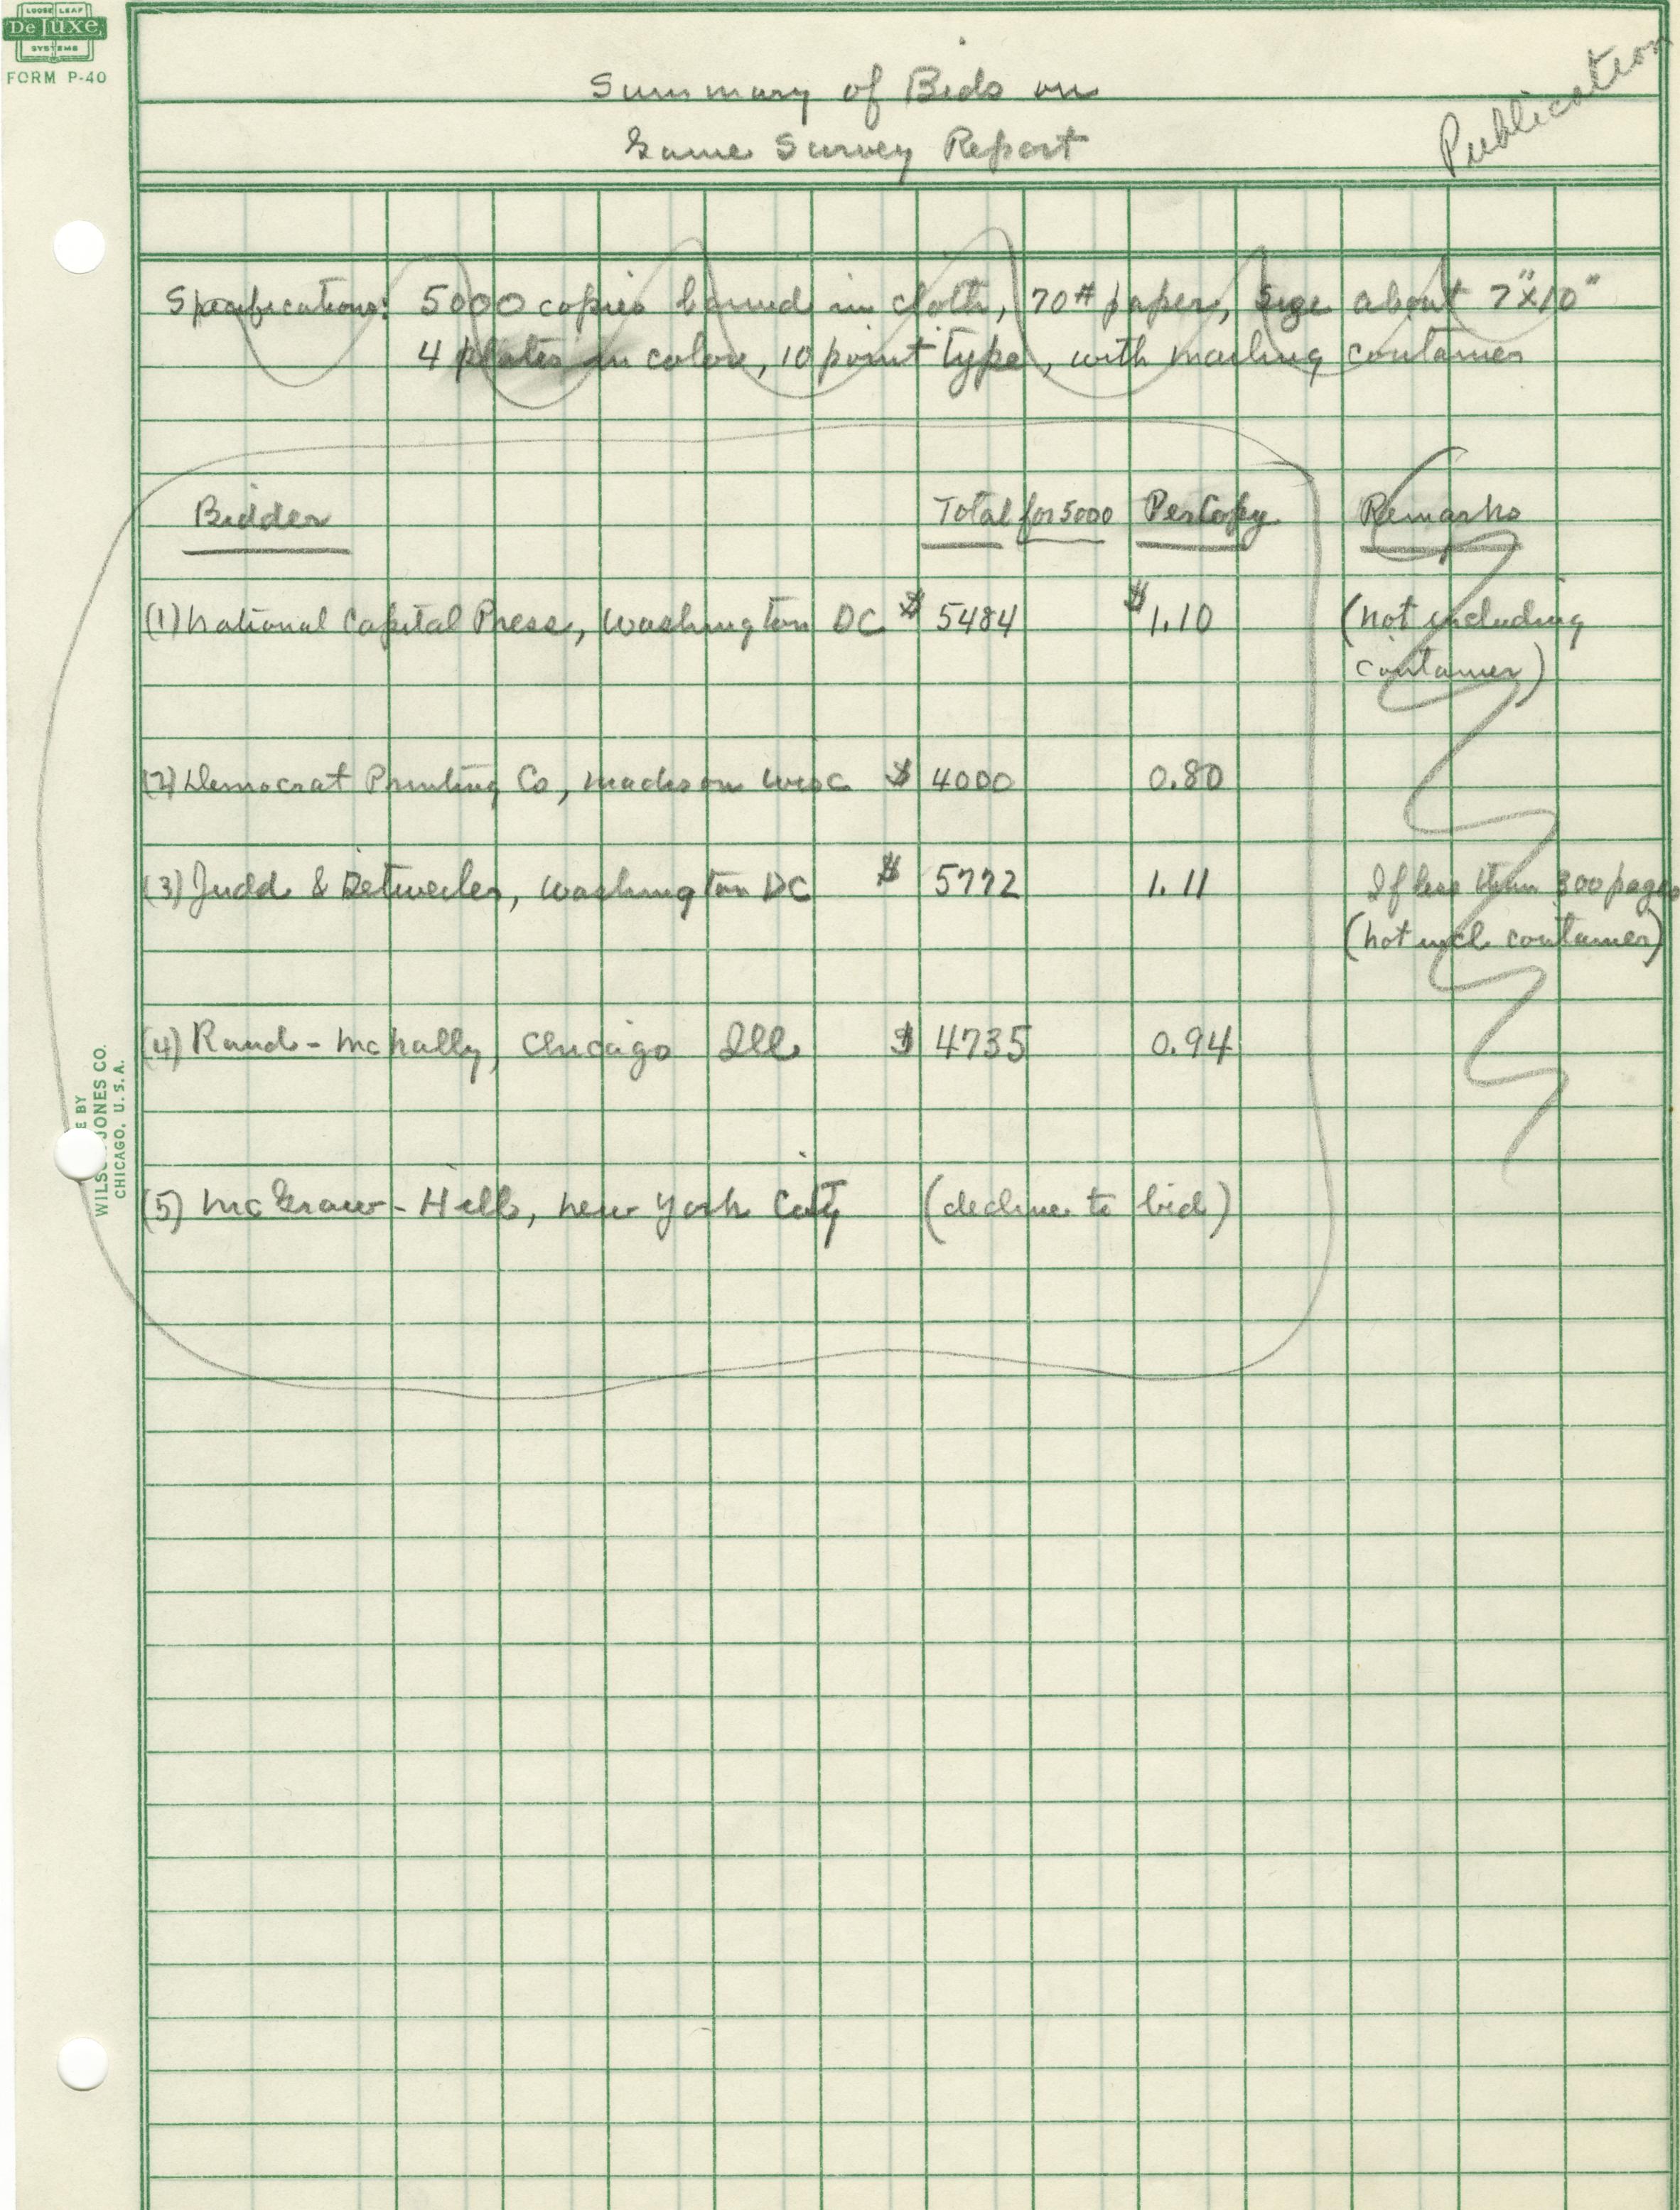 LOOSE LEAF
De Luxe
SYSTEMS
FORM P-40
Publication
Summary of Bids on
Game Survey Report
Specifications: 5000 copies bound in cloth, 70# paper, size about 7"x10"
4 plates in color, 10 point type, with mailing container
Bidder Total for 5000 Per Copy Remarks
(1) National Capital Press, Washington DC $ 5484 $1.10 (not including
container)
(2) Democrat Printing Co, Madison Wisc $ 4000 0.80
(3) Judd & Detweiler, Washington DC $ 5772 1.11 If less than 300 pages
(not incl container)
(4) Rand-McNally, Chicago Ill $ 4735 0.94
(5) McGraw-Hill, New York City (decline to bid)
E BY
WILS JONES CO.
CHICAGO, U.S.A.